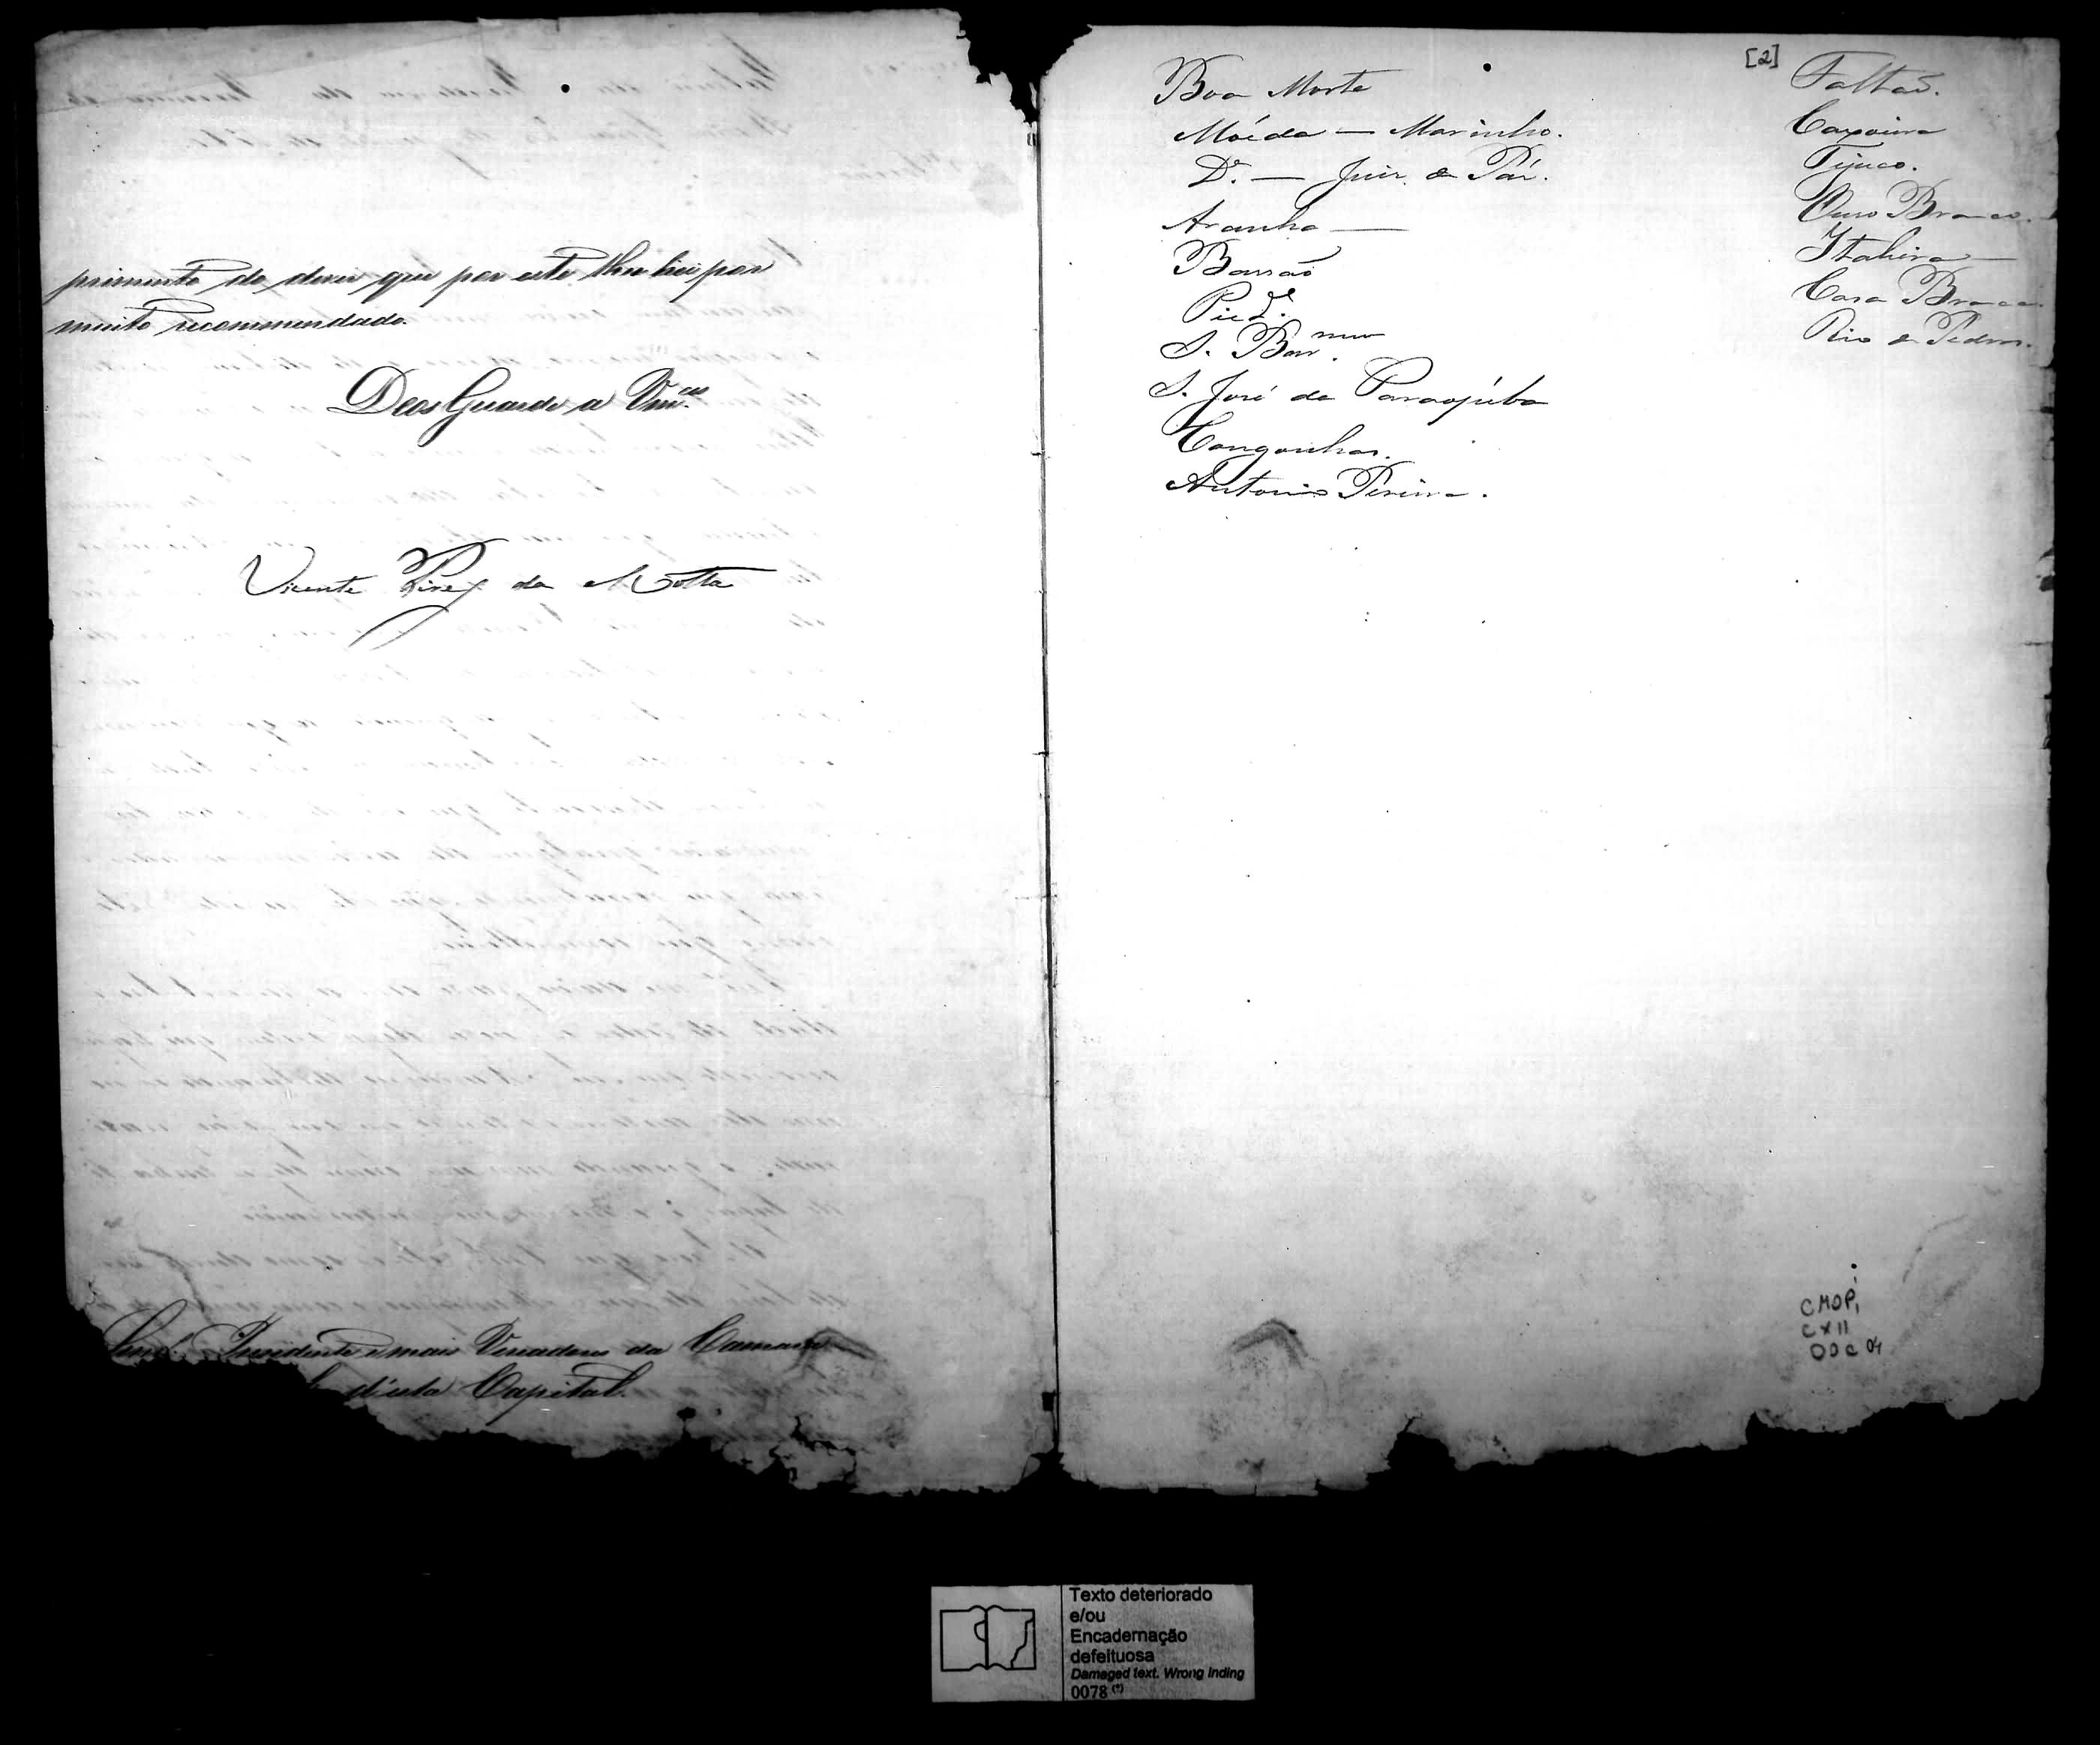 primento do dever que por este lhes hei por
muito recommendado.
Deos Guarde a Vm.ces
Vicente Pires da Motta
Presidente e mais Vereadores da Camara
d'esta Capital.
[2]
Boa Morte
Moéda — Marinho.
Dº. — Juiz de Páz.
Aranha —
Piedº.
S. José da Paraopéba
Congonhas.
Antonio Pereira.
Faltaõ.
Caxoeira
Tijuco.
Ouro Branco.
Itabira —
Casa Branca
Rio de Pedras.
CMOP,
CXII
DOC 04
Texto deteriorado
e/ou
Encadernação
defeituosa
Damaged text. Wrong inding
0078 (*)